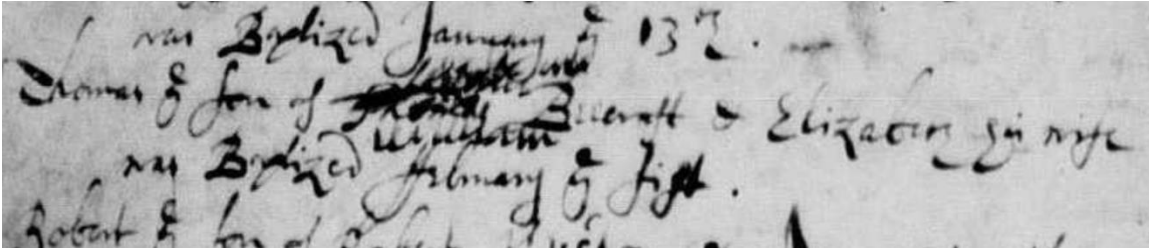 was Baptized January ye 13th.
Thomas ye son of William Beecraft & Elizabeth his wife
was Baptized ffebruary ye first.
Robert ye son of Robert